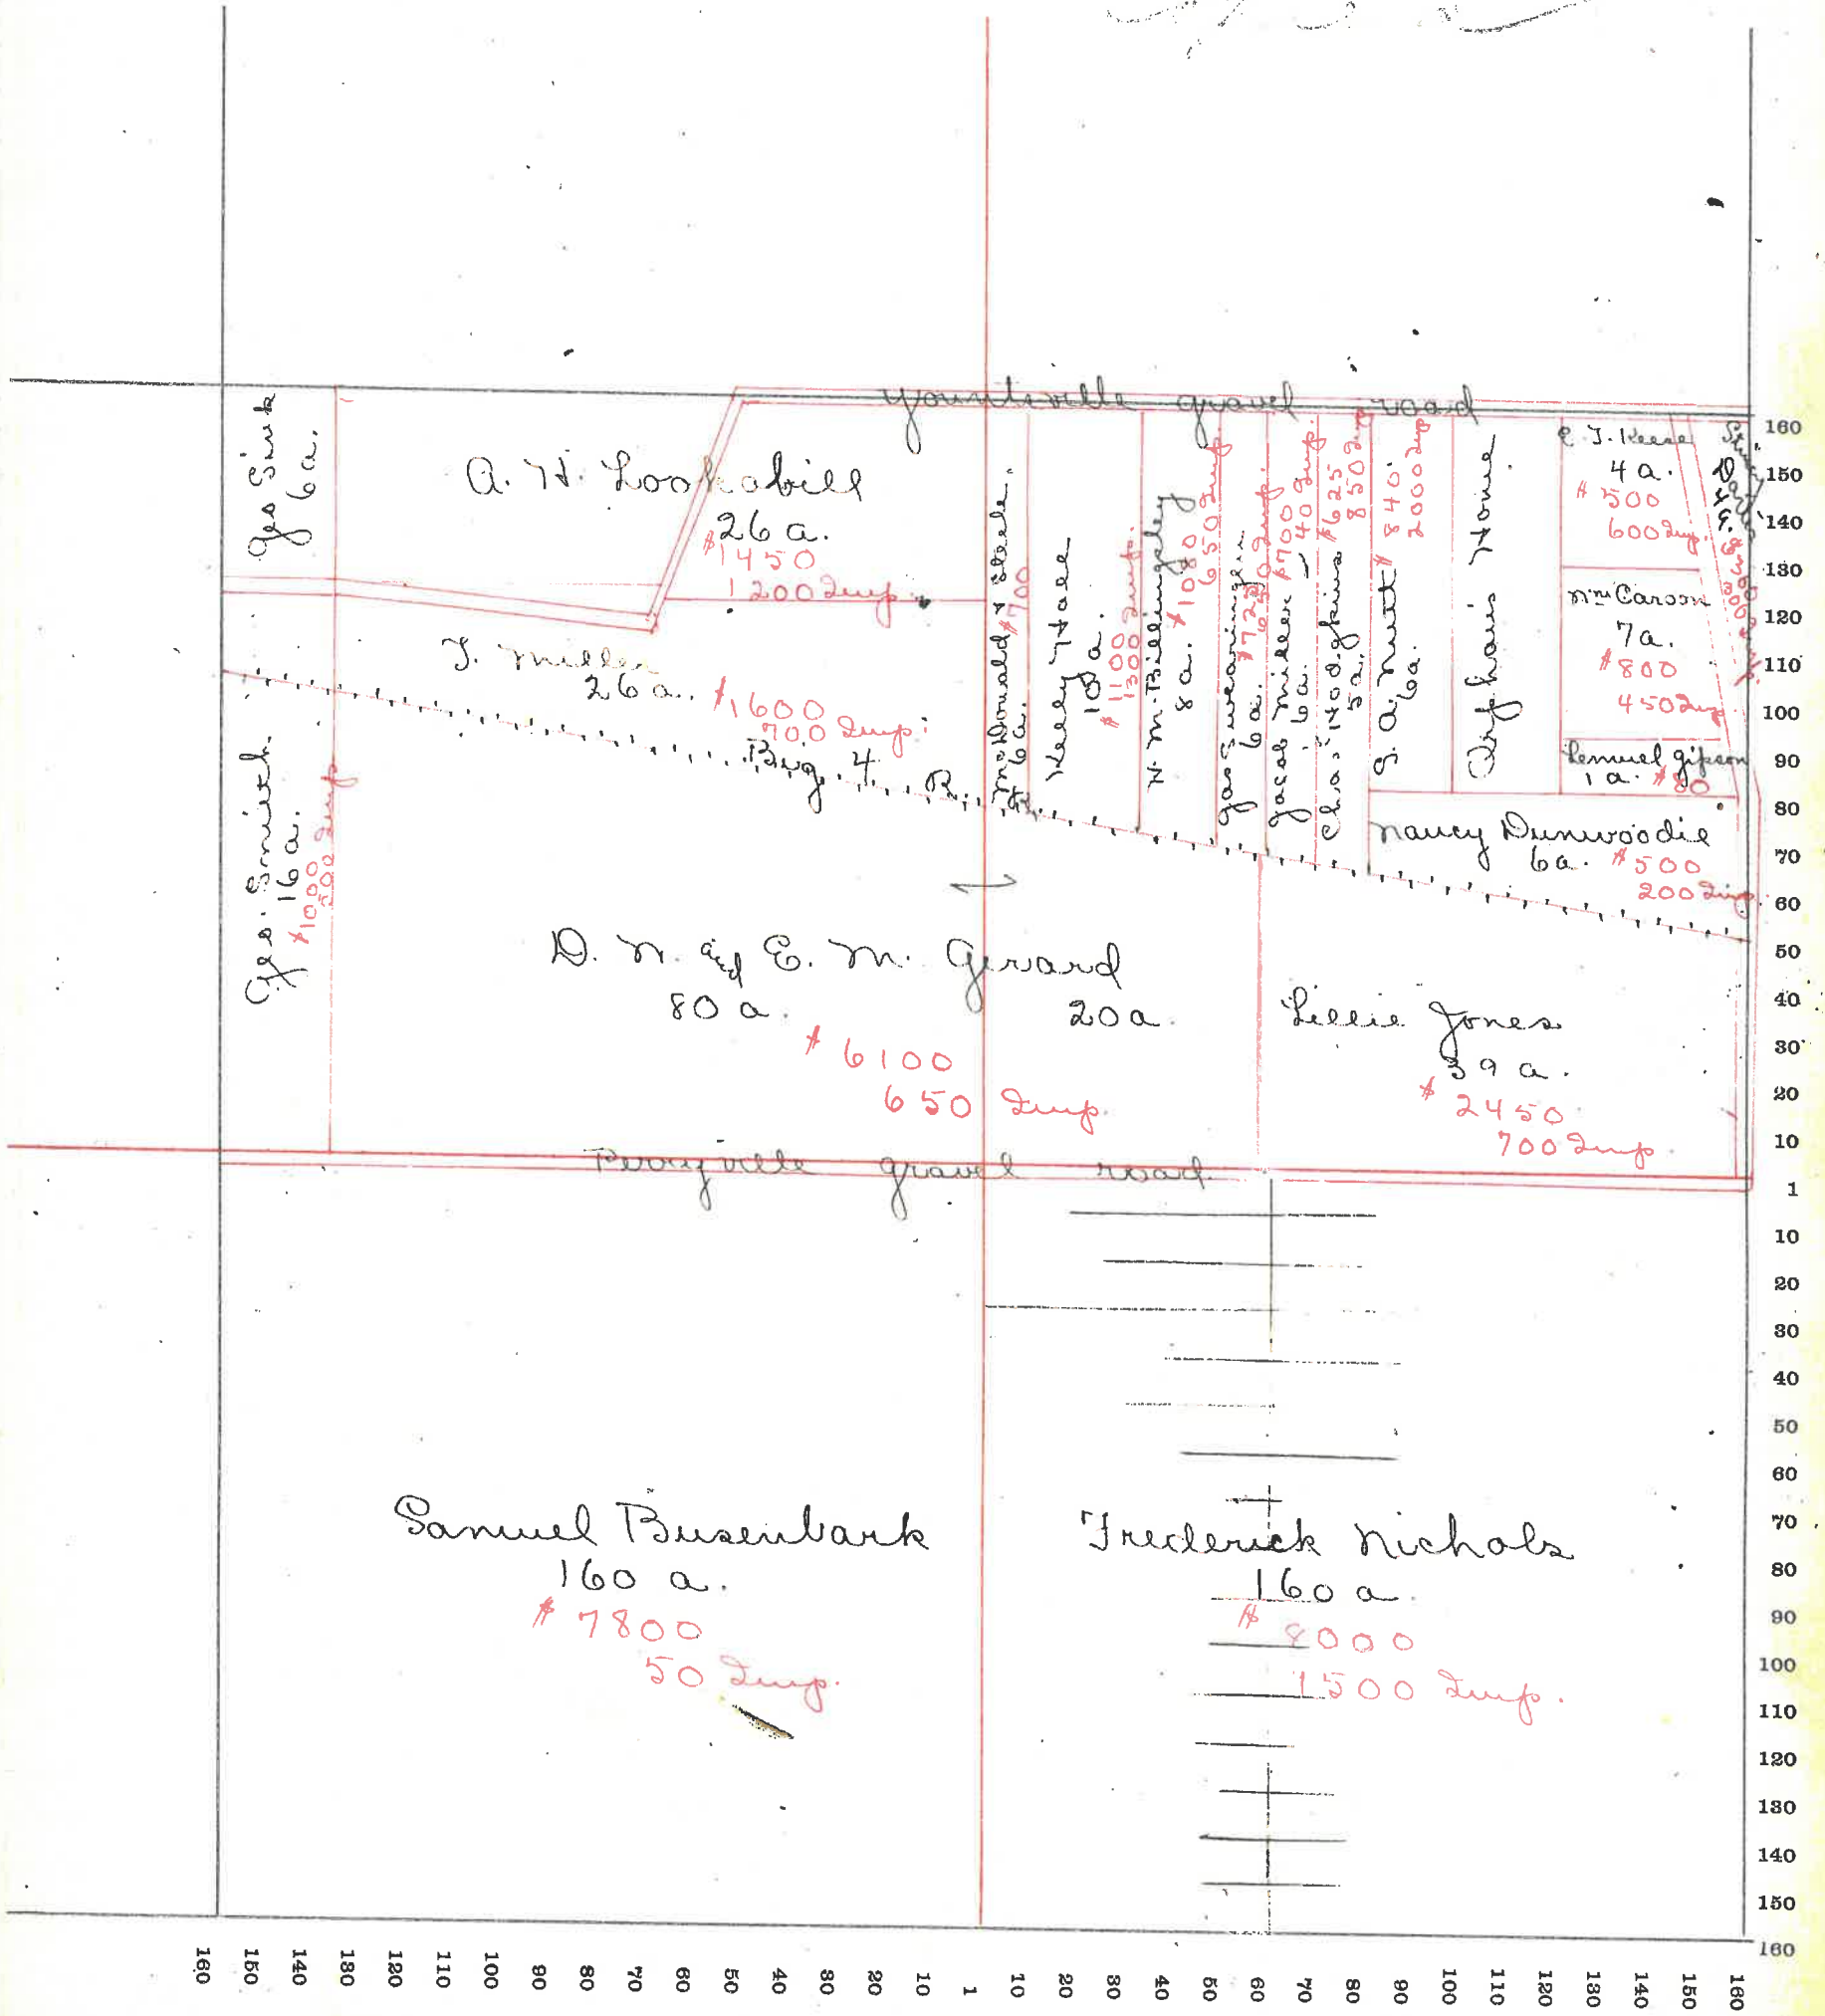 Yountsville gravel road
Geo Sink
6 a.
A. H. Lookabill
26 a.
$1450
1200 Imp.
J. Miller
26 a. $1600
700 Imp.
Big 4 R. R.
Geo. Smith
16 a.
$1000
500 Imp
McDonald & Steele
6 a. $700
Kelly Hall
10 a.
$1100
1300 Imp.
N. M. Billingsley
8 a. $1080
650 Imp.
Jas Swearingen
6 a. $720
650 Imp.
Jacob Miller $700
6 a. 40 Imp.
Chas Hodgkins $625
5 a. 850 Imp
G. A. Nutt $840
6 a. 2000 Imp
Orphans Home
E. J. Keese
4 a.
$500
600 Imp.
Wm Carson
7 a.
$800
450 Imp
Lemuel Gipson
1 a. $80
Nancy Dunwoodie
6 a. $500
200 Imp
D. N. and E. M. Gerard
80 a. 20 a.
$6100
650 Imp.
Lillie Jones
39 a.
$2450
700 Imp.
Perryville gravel road
Samuel Busenbark
160 a.
$7800
50 Imp.
Frederick Nichols
160 a.
$8000
1500 Imp.
160
150
140
130
120
110
100
90
80
70
60
50
40
30
20
10
1
10
20
30
40
50
60
70
80
90
100
110
120
130
140
150
160
160 150 140 130 120 110 100 90 80 70 60 50 40 30 20 10 1 10 20 30 40 50 60 70 80 90 100 110 120 130 140 150 160